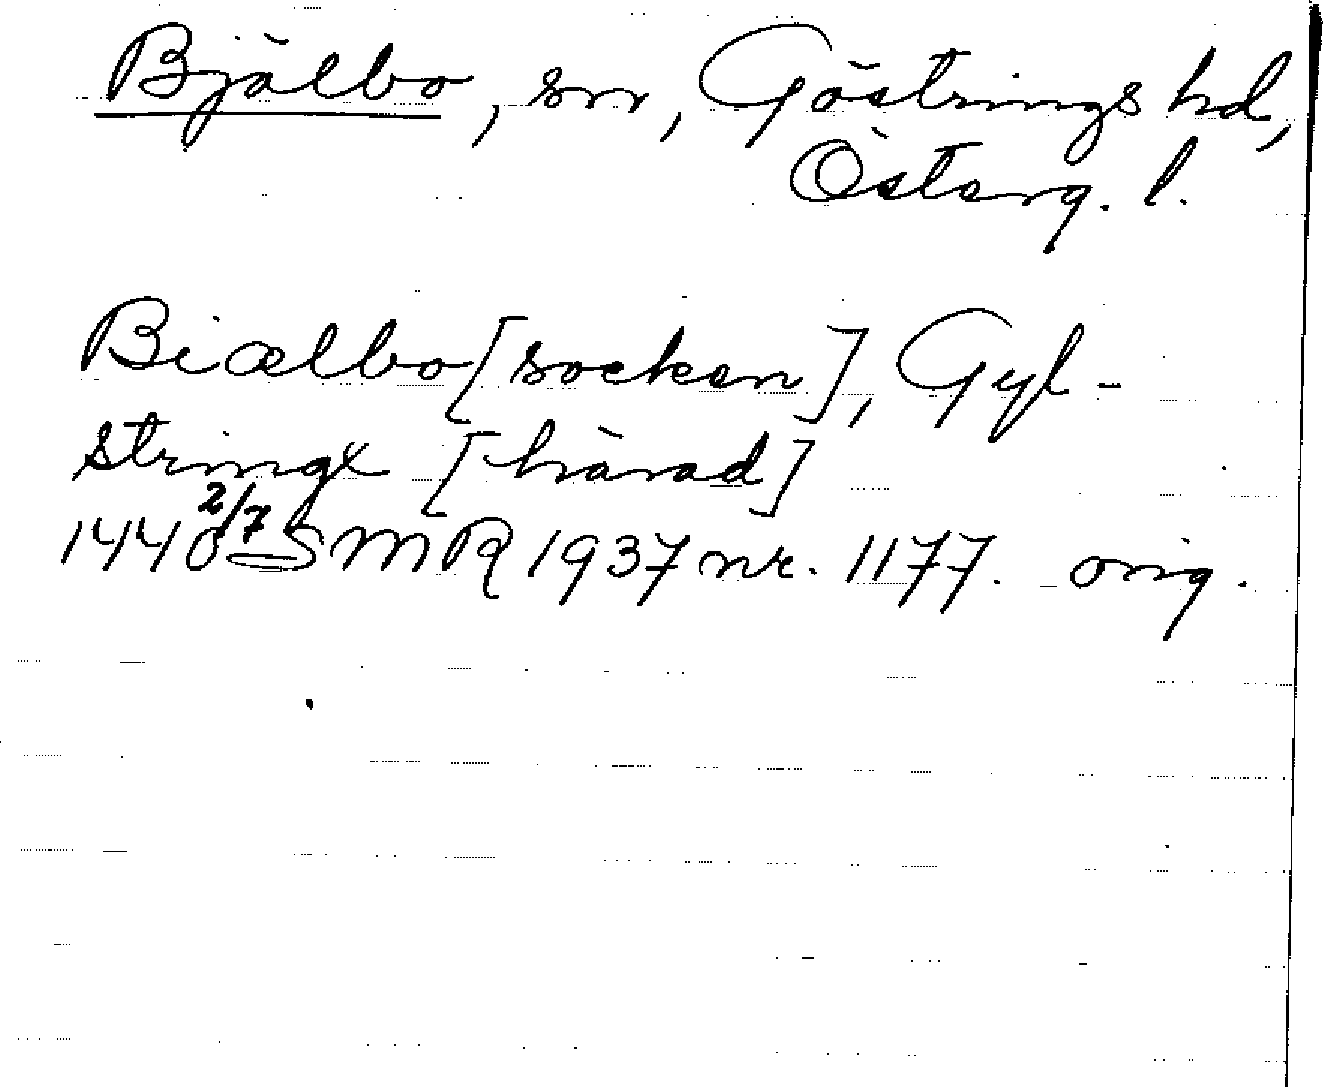 Bjälbo, sn, Göstrings hd,
Österg. l.
Biælbo [socken], Gyl-
stringx [härad]
1440 2/7 SMR 1937 nr. 1177. orig.